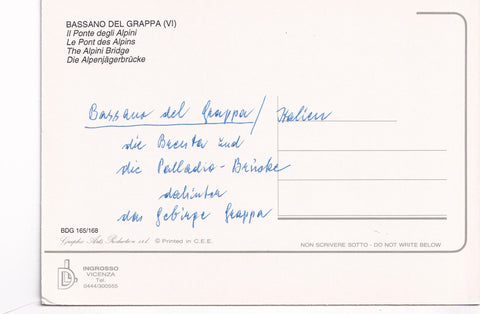 BASSANO DEL GRAPPA (VI)
Il Ponte degli Alpini
Le Pont des Alpins
The Alpini Bridge
Die Alpenjägerbrücke
Bassano del Grappa / Italien
die Brenta und
die Palladio-Brücke
dahinter
das Gebirge Grappa
BDG 165/168
Graphic Arts Production srl © Printed in C.E.E.
NON SCRIVERE SOTTO - DO NOT WRITE BELOW
INGROSSO
VICENZA
Tel.
0444/300555